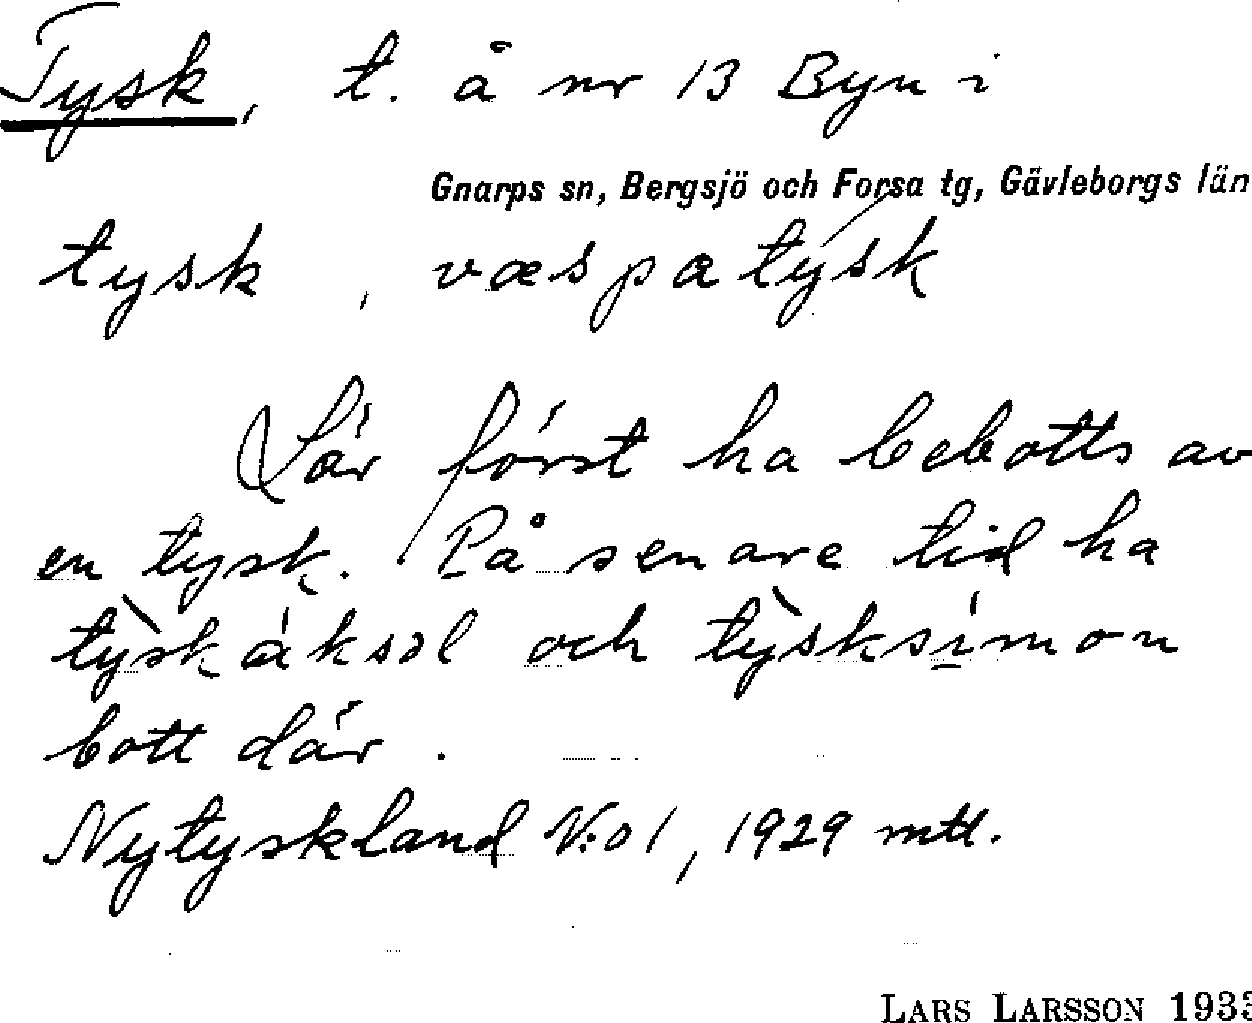 Tysk, t. å nr 13 Byn i
Gnarps sn, Bergsjö och Forsa tg, Gävleborgs län
tysk, væspatysk
Lär först ha bebotts av
en tysk. På senare tid ha
och tysksimon
bott där.
Nytyskland N:o 1, 1929 mtl.
LARS LARSSON 1933